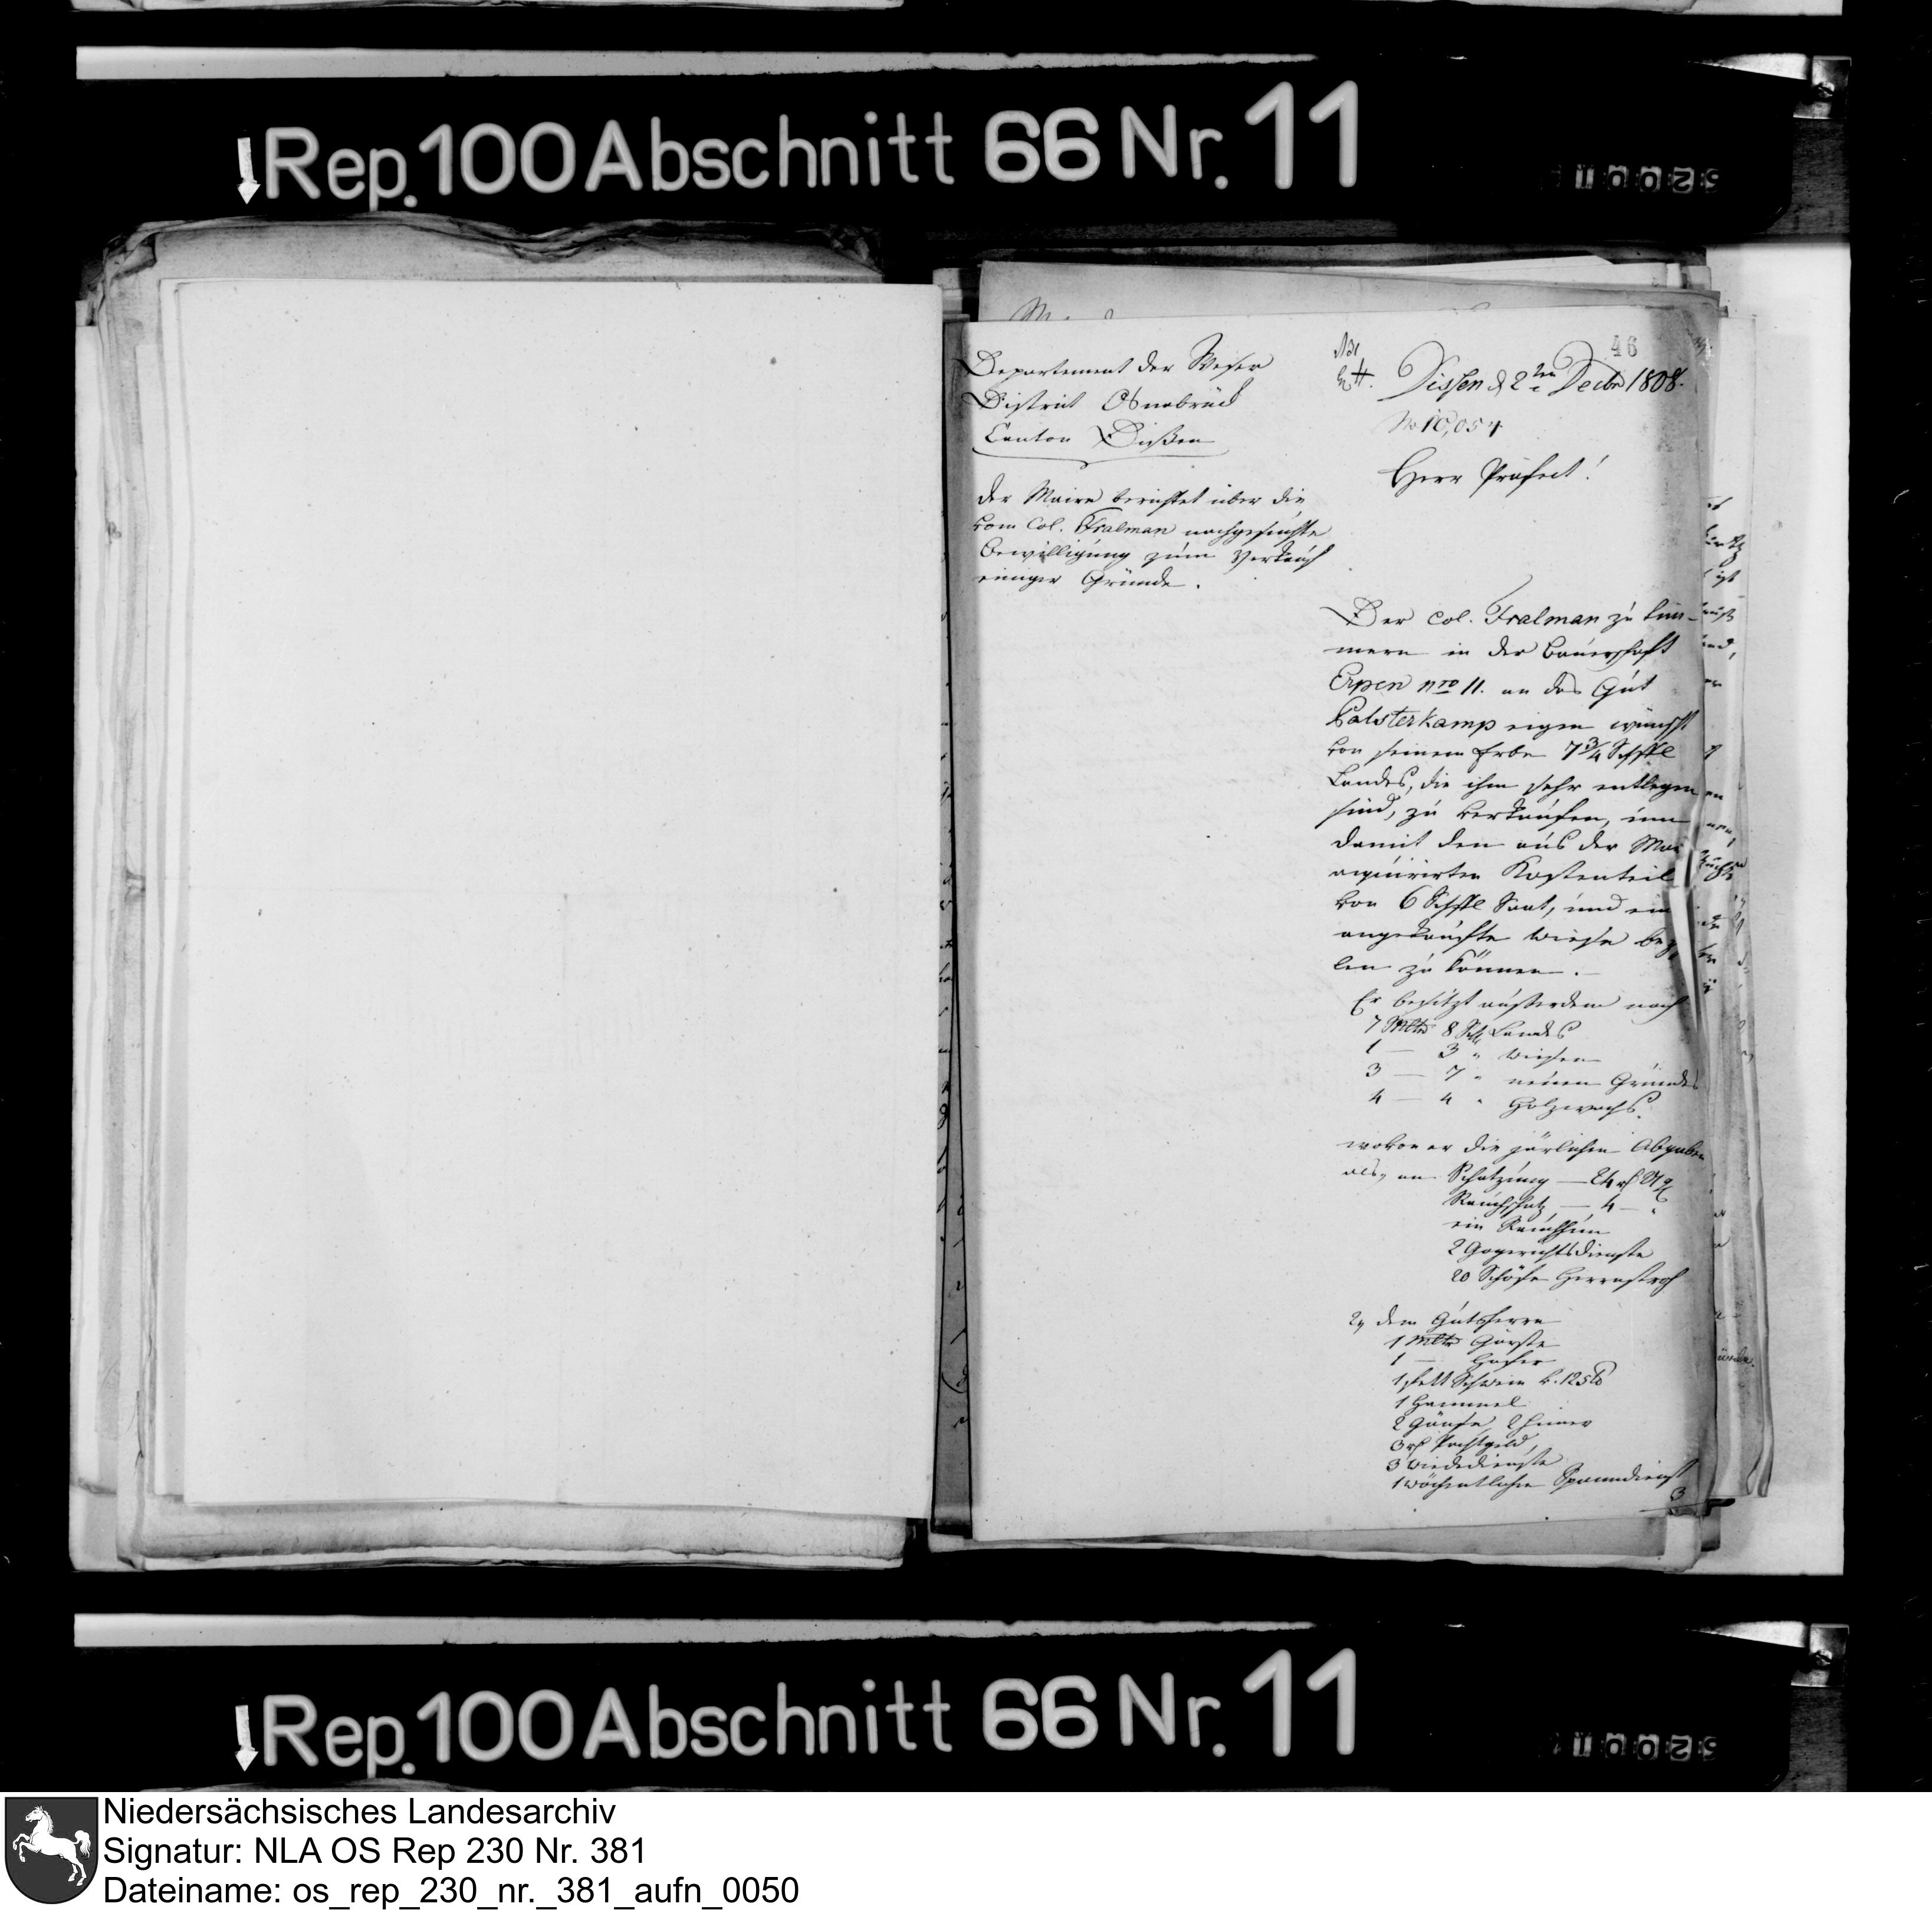 Rep. 100 Abschnitt 66 Nr. 11
46
Departement der Weser
District Osnabrück
Canton Dißen
Der Maire berichtet über die
vom Col. Fralman nachgesuchte
Bewilligung zum Verkauf
einiger Gründe.
Dissen d 2ten Decbr 1808.
No 10,054
Herr Präfect!
Der Col. Fralman zu Tim-
mern in der Bauerschaft
Erpen nro 11. an das Gut
Palsterkamp eigen wünscht
von seinem Erbe 7 3/4 Schffl
Landes, die ihm sehr entlegen
sind, zu verkaufen, um
damit den aus der Mar
acquirirten Kostenteil
von 6 Schffl Saat, und ein
angekaufte Wiese bez
len zu können.
Er besitzt außerdem noch
7 Mltr 8 Schl Landes
1 — 3 " Wiesen
3 — 7 " neuen Grundes
4 — 4 " Holzwachs.
wovon er die järlichen Abgaben
als, an Schatzung — 24 rh 21
Rauchschatz — 4 — "
ein Rauchhun
2 Gogerichtsdienste
20 Schöfe Herrnstroh
2, dem Gutsherrn
1 Mltr Gärste
1 — Hafer
1 fett Schwein v. 125 lb
1 Hammel
2 Gänse, 2 Hüner
3 rh Pachtgeld
3 Wiedediens­te
1 wöchentlichen Spanndienst
3
Rep. 100 Abschnitt 66 Nr. 11
Niedersächsisches Landesarchiv
Signatur: NLA OS Rep 230 Nr. 381
Dateiname: os_rep_230_nr._381_aufn_0050